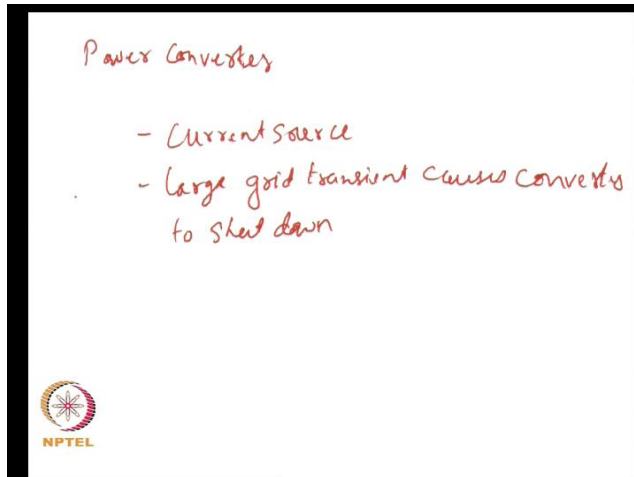 Power Converter
- Current source
- Large grid transient causes converter
to shut down
NPTEL